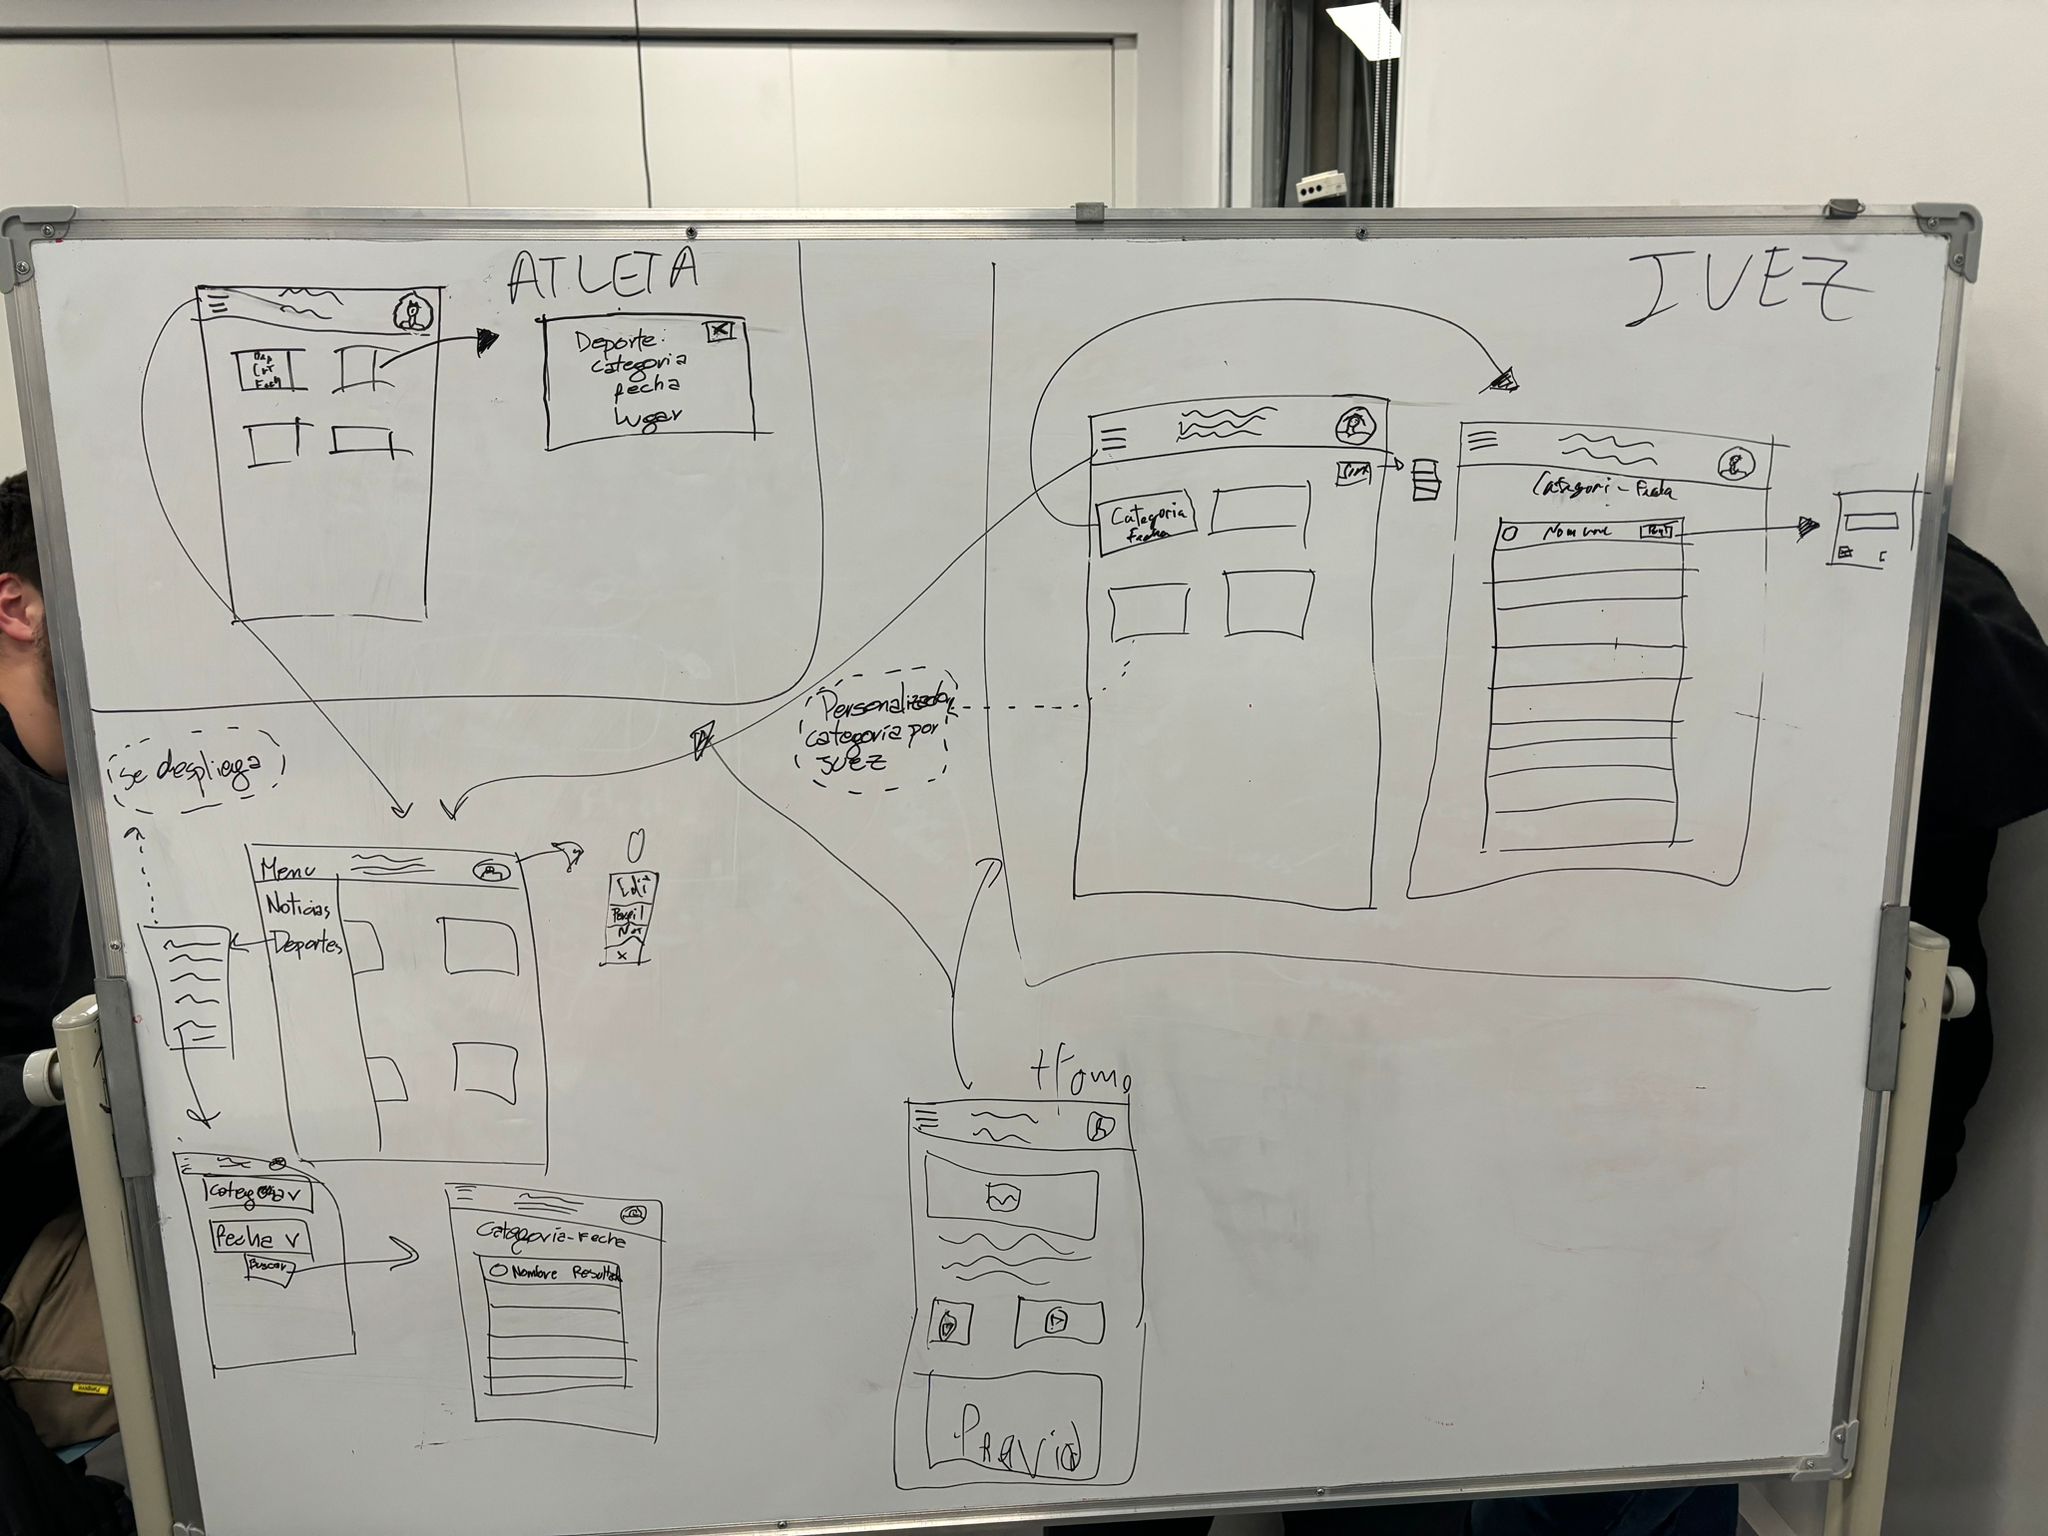 ATLETA
Deporte:
categoria
fecha
Lugar
X
JUEZ
Categoria
Fecha
Categori - Fecha
Nombre
Personalizado
categoría por
JUEZ
se despliega
Menu
Noticias
Deportes
Edit
Perfil
Not
x
Categoria v
Fecha v
Buscar
Categoria - Fecha
Nombre Resultado